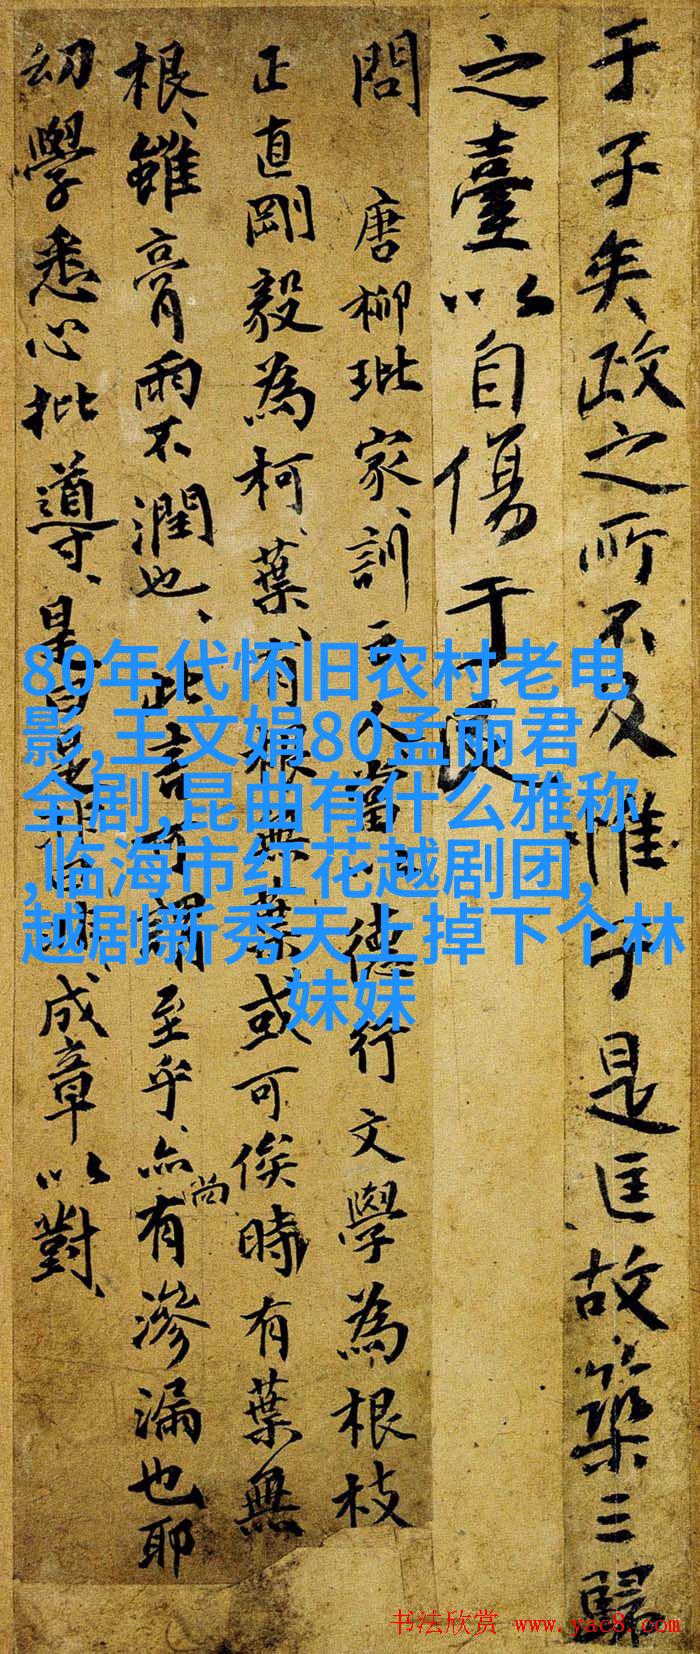 于子矣政之所不及惟子是匡故築三歸
之臺以自傷于民
問 唐柳玭家訓云人當以德行文學為根枝
正直剛毅為柯、葉、有根無葉或可俟時有葉無
根、雖膏雨不潤也、此言可謂至乎、尚亦有滲漏也耶
幼學悉心批導、是成章以對、
80年代怀旧农村老电
影,王文娟80孟丽君
全剧,昆曲有什么雅称
,临海市红花越剧团,
越剧新秀天上掉下个林
妹妹
书法欣赏 www.yac8.com